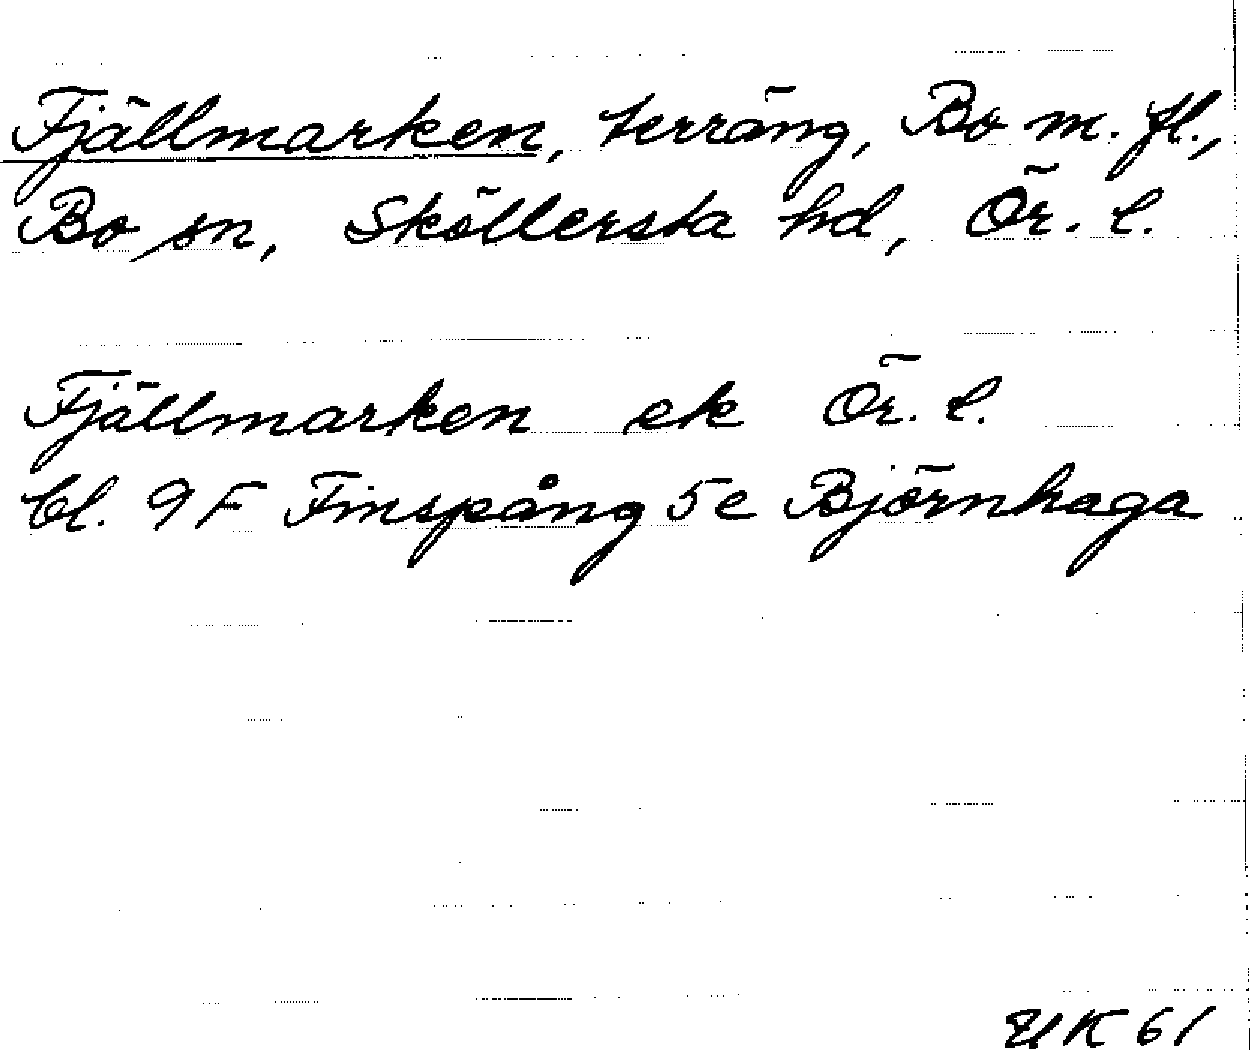 Fjällmarken, terräng, Bo m. fl.,
Bo sn, Sköllersta hd, Ör. l.
Fjällmarken ek Ör. l.
bl. 9F Finspång 5c Björnhaga
UK 61